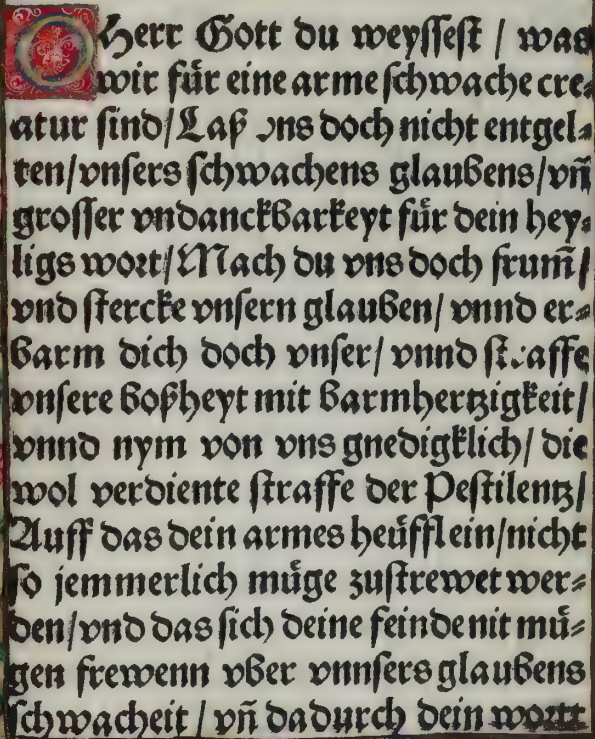 O Herr Gott du weyssest / was
wir für eine arme schwache cre⸗
atur sind/ Laß vns doch nicht entgel⸗
ten/ vnsers schwachens glaubens/ vñ
grosser vndanckbarkeyt für dein hey⸗
ligs wort/ Mach du vns doch frum̃/
vnd stercke vnsern glauben/ vnnd er⸗
barm dich doch vnser/ vnnd straffe
vnsere boßheyt mit barmhertzigkeit/
vnnd nym von vns gnedigklich/ die
wol verdiente straffe der Pestilentz/
Auff das dein armes heüfflein/ nicht
so jemmerlich müge zustrewet wer⸗
den/ vnd das sich deine feinde nit mü⸗
gen frewenn vber vnnsers glaubens
schwacheit / vñ dadurch dein wortt